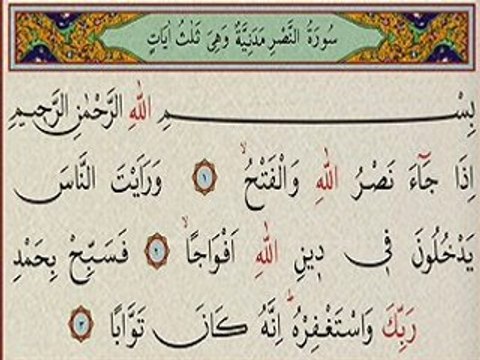 سُورَةُ النَّصْرِ مَدَنِيَّةٌ وَهِيَ ثَلٰثُ اٰيَاتٍ
بِسْمِ اللهِ الرَّحْمٰنِ الرَّحِيمِ
اِذَا جَٓاءَ نَصْرُ اللهِ وَالْفَتْحُۙ ١ وَرَاَيْتَ النَّاسَ
يَدْخُلُونَ فٖي دٖينِ اللهِ اَفْوَاجًاۙ ٢ فَسَبِّحْ بِحَمْدِ
رَبِّكَ وَاسْتَغْفِرْهُؕ اِنَّهُ كَانَ تَوَّابًا ٣